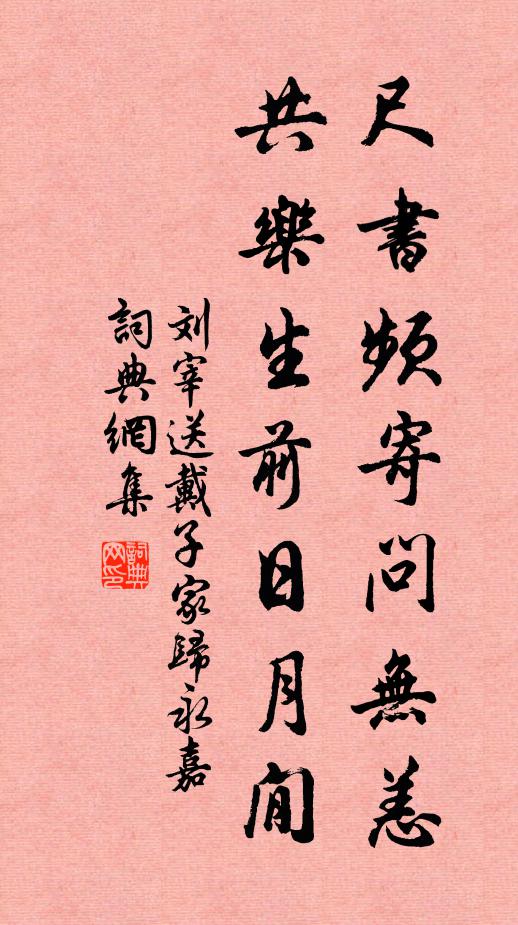 尺書頻寄問無恙
共樂生前日月間
刘宰送戴子家歸永嘉
詞典網集
詞典网印